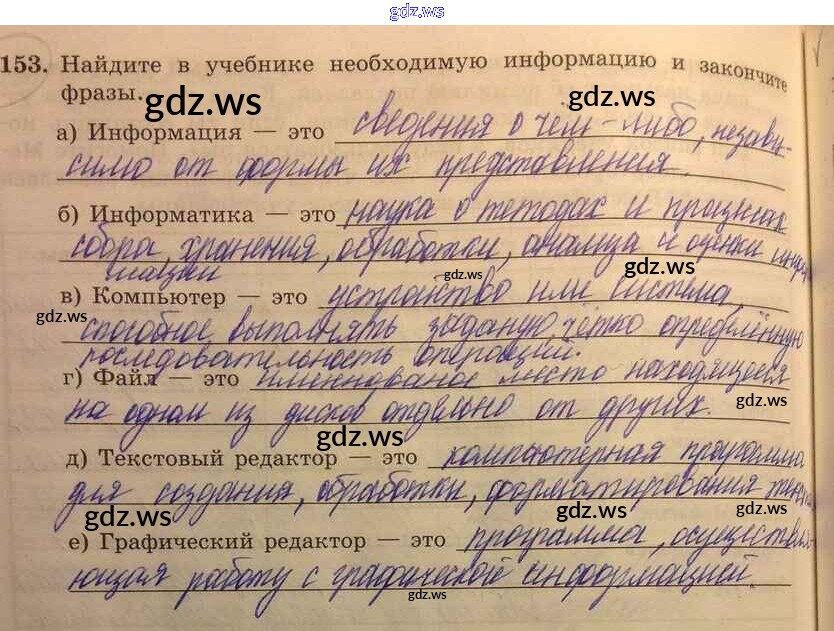 gdz.ws
153. Найдите в учебнике необходимую информацию и закончите
фразы.
gdz.ws
gdz.ws
а) Информация — это сведения о чем-либо, незави-
симо от формы их представления.
б) Информатика — это наука о методах и процессах
сбора, хранения, обработки, анализа и оценки инфор
мации
gdz.ws
gdz.ws
в) Компьютер — это устройство или система,
gdz.ws
способное выполнять заданую, чётко определённую
последовательность операций.
г) Файл — это именнованое место находящееся
на одном из дисков отдельно от других.
gdz.ws
gdz.ws
д) Текстовый редактор — это компьютерная программа
для создания, обработки, форматирования
gdz.ws
gdz.ws
gdz.ws
е) Графический редактор — это программа, осуществля-
ющая работу с графической информацией.
gdz.ws